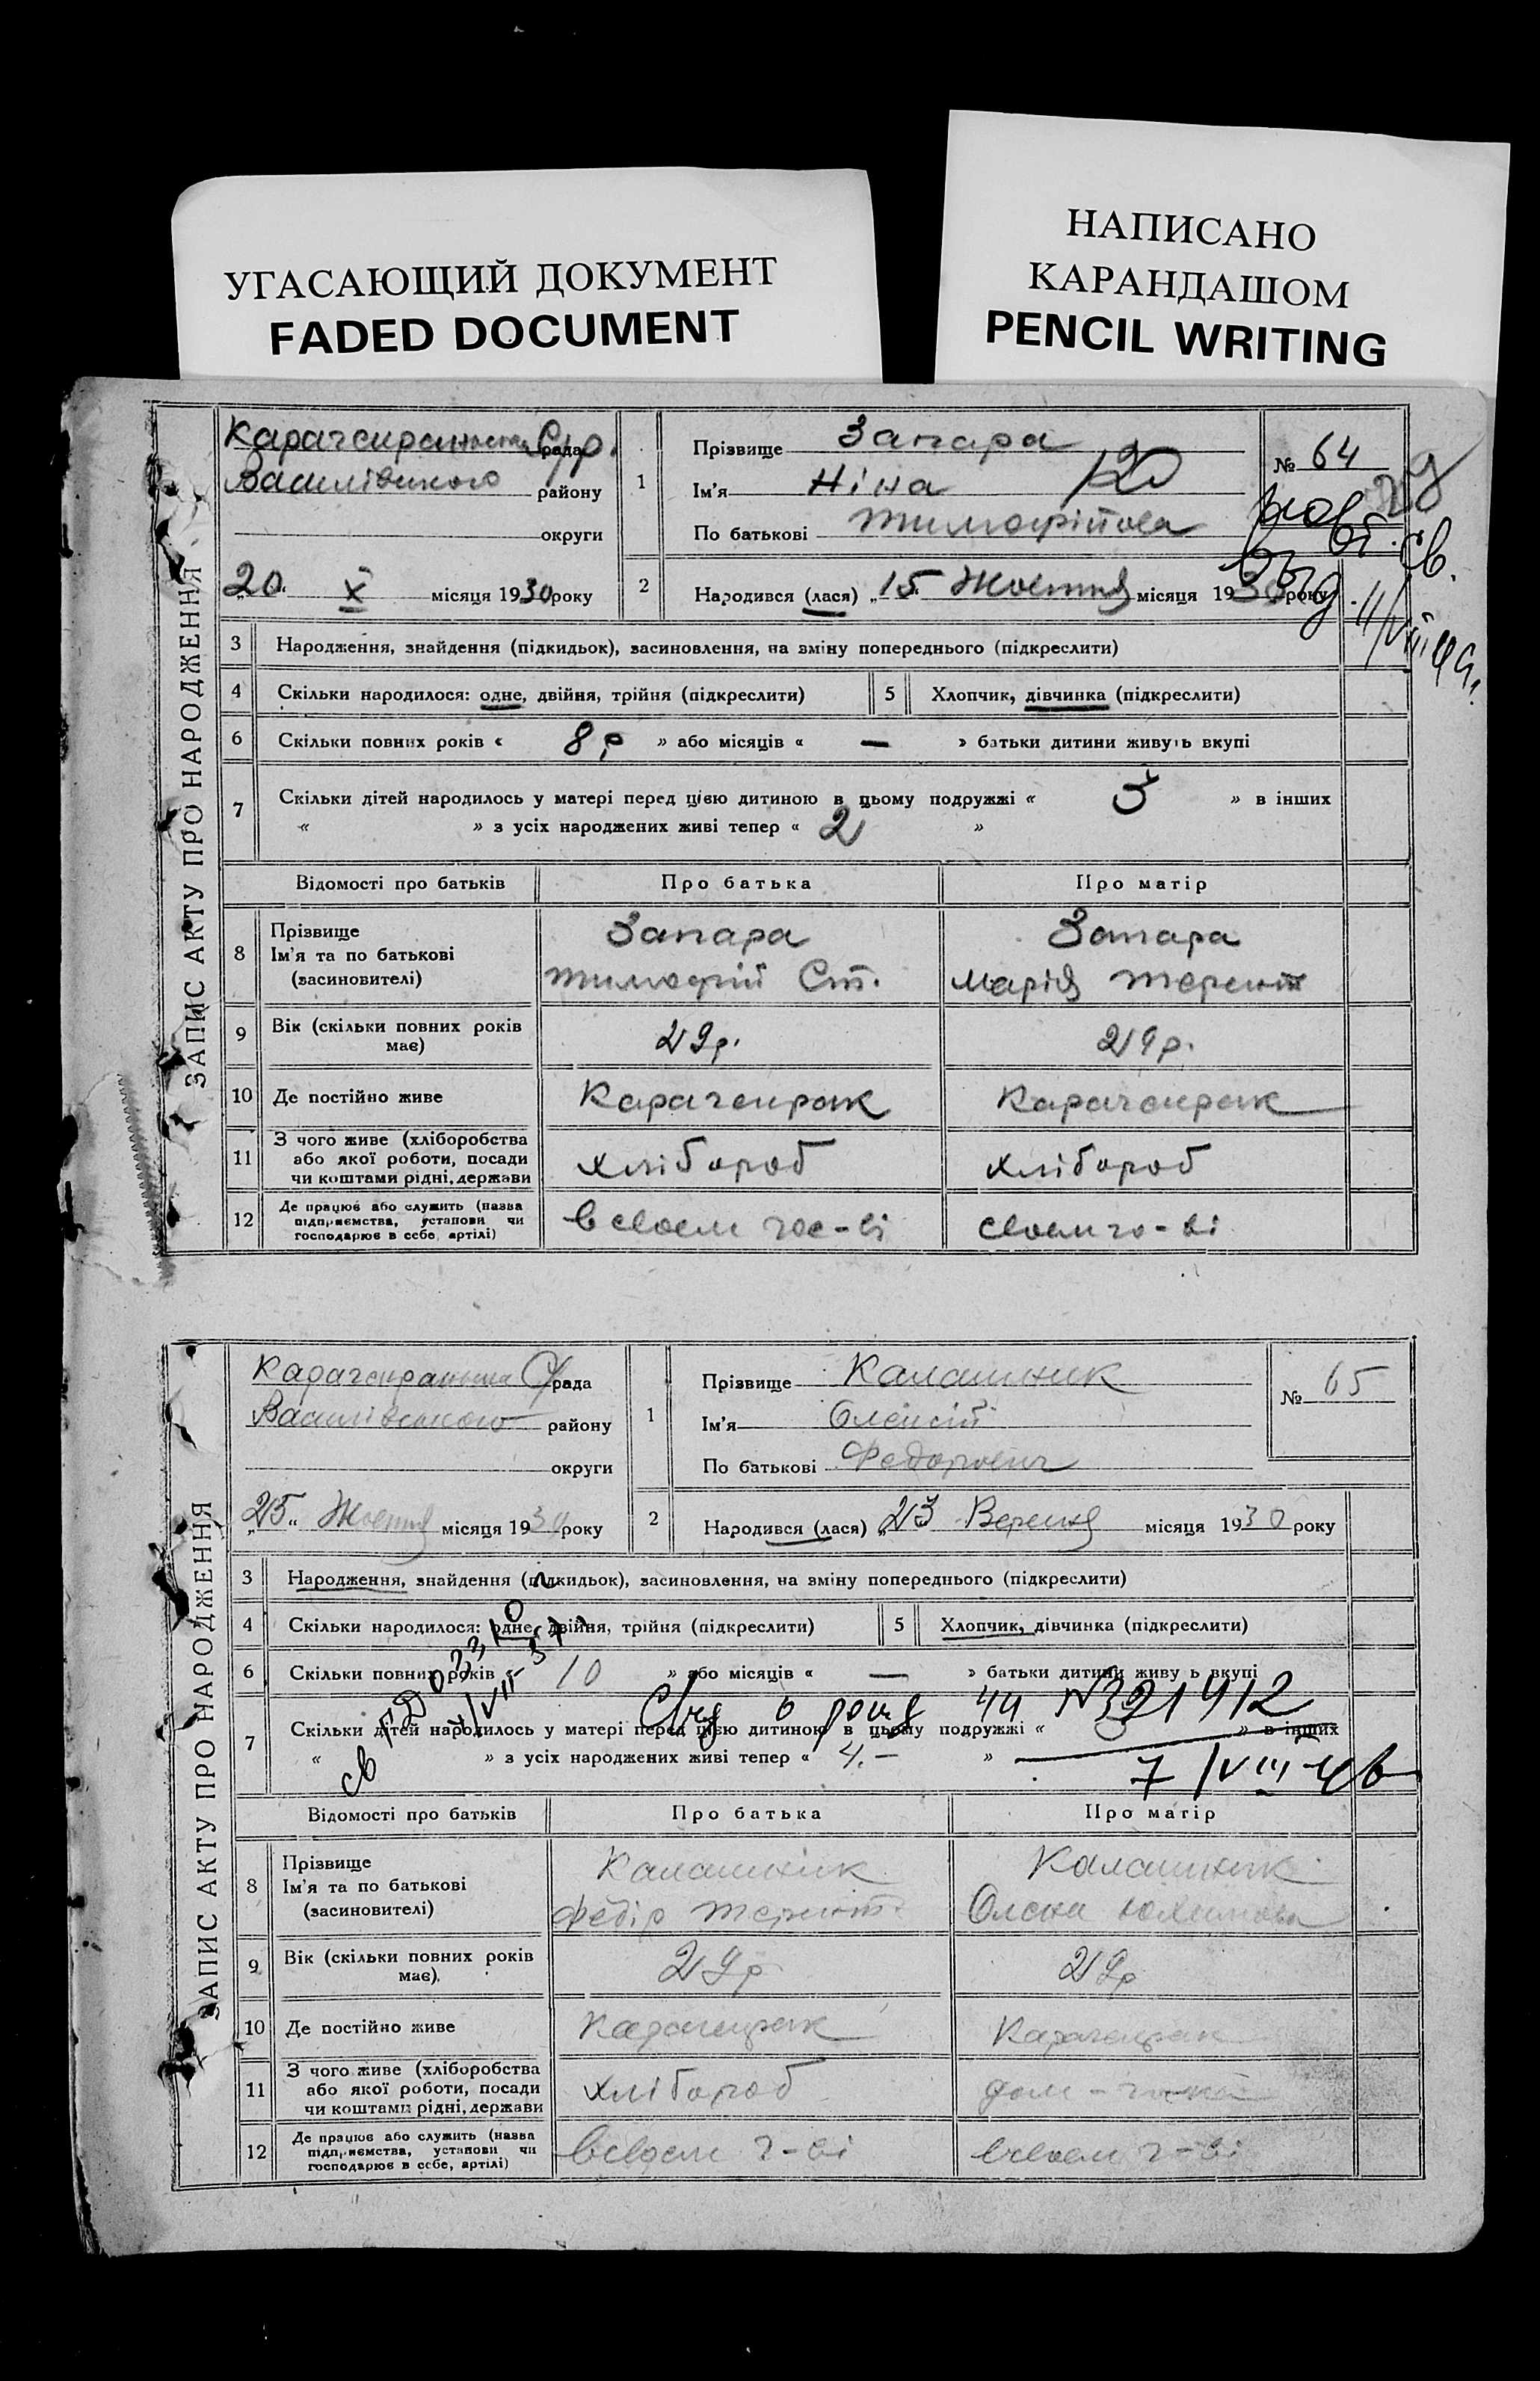 УГАСАЮЩИЙ ДОКУМЕНТ
FADED DOCUMENT
НАПИСАНО
КАРАНДАШОМ
PENCIL WRITING
ЗАПИС АКТУ ПРО НАРОДЖЕННЯ
рада
Василівського району
округи
„20“ X місяця 1930 року
1
Прізвище Запара
Ім'я Ніна
По батькові Тимофіївна
№ 64
2
Народився (лася) „15“ Жовтня місяця 1930 року
3 Народження, знайдення (підкидьок), засиновлення, на зміну попереднього (підкреслити)
4 Скільки народилося: одне, двійня, трійня (підкреслити)
5 Хлопчик, дівчинка (підкреслити)
6 Скільки повних років « 8 р » або місяців « — » батьки дитини живуть вкупі
7 Скільки дітей народилось у матері перед цією дитиною в цьому подружжі « 3 » в інших
« » з усіх народжених живі тепер « 2 »
Відомості про батьків Про батька Про матір
8 Прізвище
Ім'я та по батькові
(засиновителі)
Запара
Тимофій Ст.
Запара
Марія Терент
9 Вік (скільки повних років
має)
29 р.
29 р.
10 Де постійно живе Карачекрак Карачекрак
11 З чого живе (хліборобства
або якої роботи, посади
чи коштами рідні, держави
хлібороб хлібороб
12 Де працює або служить (назва
підприємства, установи чи
господарює в себе, артілі)
в своем гос-ві своем го-ві
ЗАПИС АКТУ ПРО НАРОДЖЕННЯ
рада
Василівського району
округи
„25“ Жовтня місяця 1930 року
1
Прізвище Калашник
Ім'я Олексій
По батькові Федорович
№ 65
2
Народився (лася) „23 Вересня місяця 1930 року
3 Народження, знайдення (підкидьок), засиновлення, на зміну попереднього (підкреслити)
4 Скільки народилося: одне, двійня, трійня (підкреслити)
5 Хлопчик, дівчинка (підкреслити)
6 Скільки повних років « 10 » або місяців « — » батьки дитини живуть вкупі
7 Скільки дітей народилось у матері перед цією дитиною в цьому подружжі « » в інших
« » з усіх народжених живі тепер « 4.— »
Відомості про батьків Про батька Про матір
8 Прізвище
Ім'я та по батькові
(засиновителі)
Калашник
Федір Терент.
Калашник
Олена Юхимовна
9 Вік (скільки повних років
має).
29 р
29 р
10 Де постійно живе Карачекрак Карачекрак
11 З чого живе (хліборобства
або якої роботи, посади
чи коштами рідні, держави
хлібороб
12 Де працює або служить (назва
підприємства, установи чи
господарює в себе, артілі)
в своем г-ві в своем г-ві